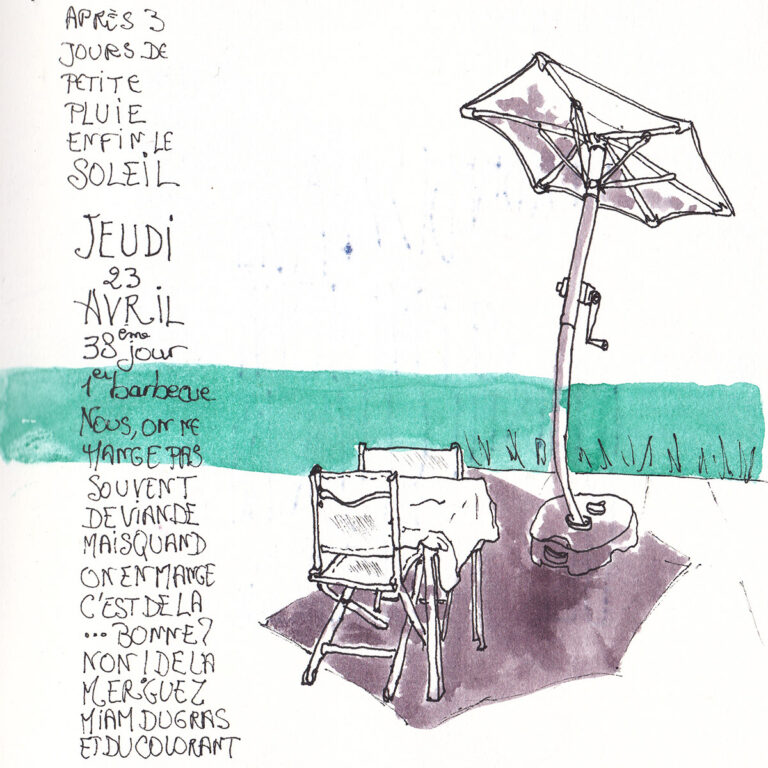 APRÈS 3
JOURS DE
PETITE
PLUIE
ENFIN LE
SOLEIL
JEUDI
23
AVRIL
38ème jour
1er barbecue
NOUS, ON NE
MANGE PAS
SOUVENT
DE VIANDE
MAIS QUAND
ON EN MANGE
C'EST DE LA
... BONNE?
NON! DE LA
MERGUEZ
MIAM DU GRAS
ET DU COLORANT